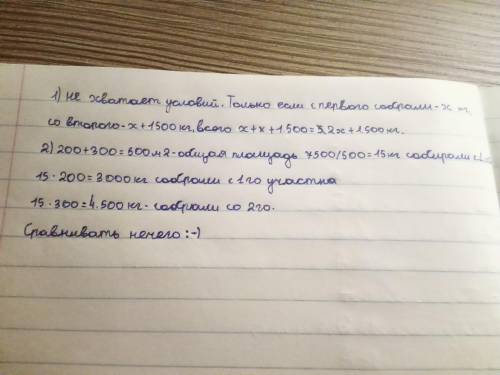 1) не хватает условий. Только если с первого собрали - x кг,
со второго - x + 1500 кг, всего x + x + 1.500 = 2x + 1.500 кг.
2) 200 + 300 = 500 м2 - общая площадь 7500/500 = 15 кг собирали с
15 · 200 = 3000 кг собрали с 1го участка
15 · 300 = 4.500 кг - собрали со 2го.
Сравнивать нечего :-)